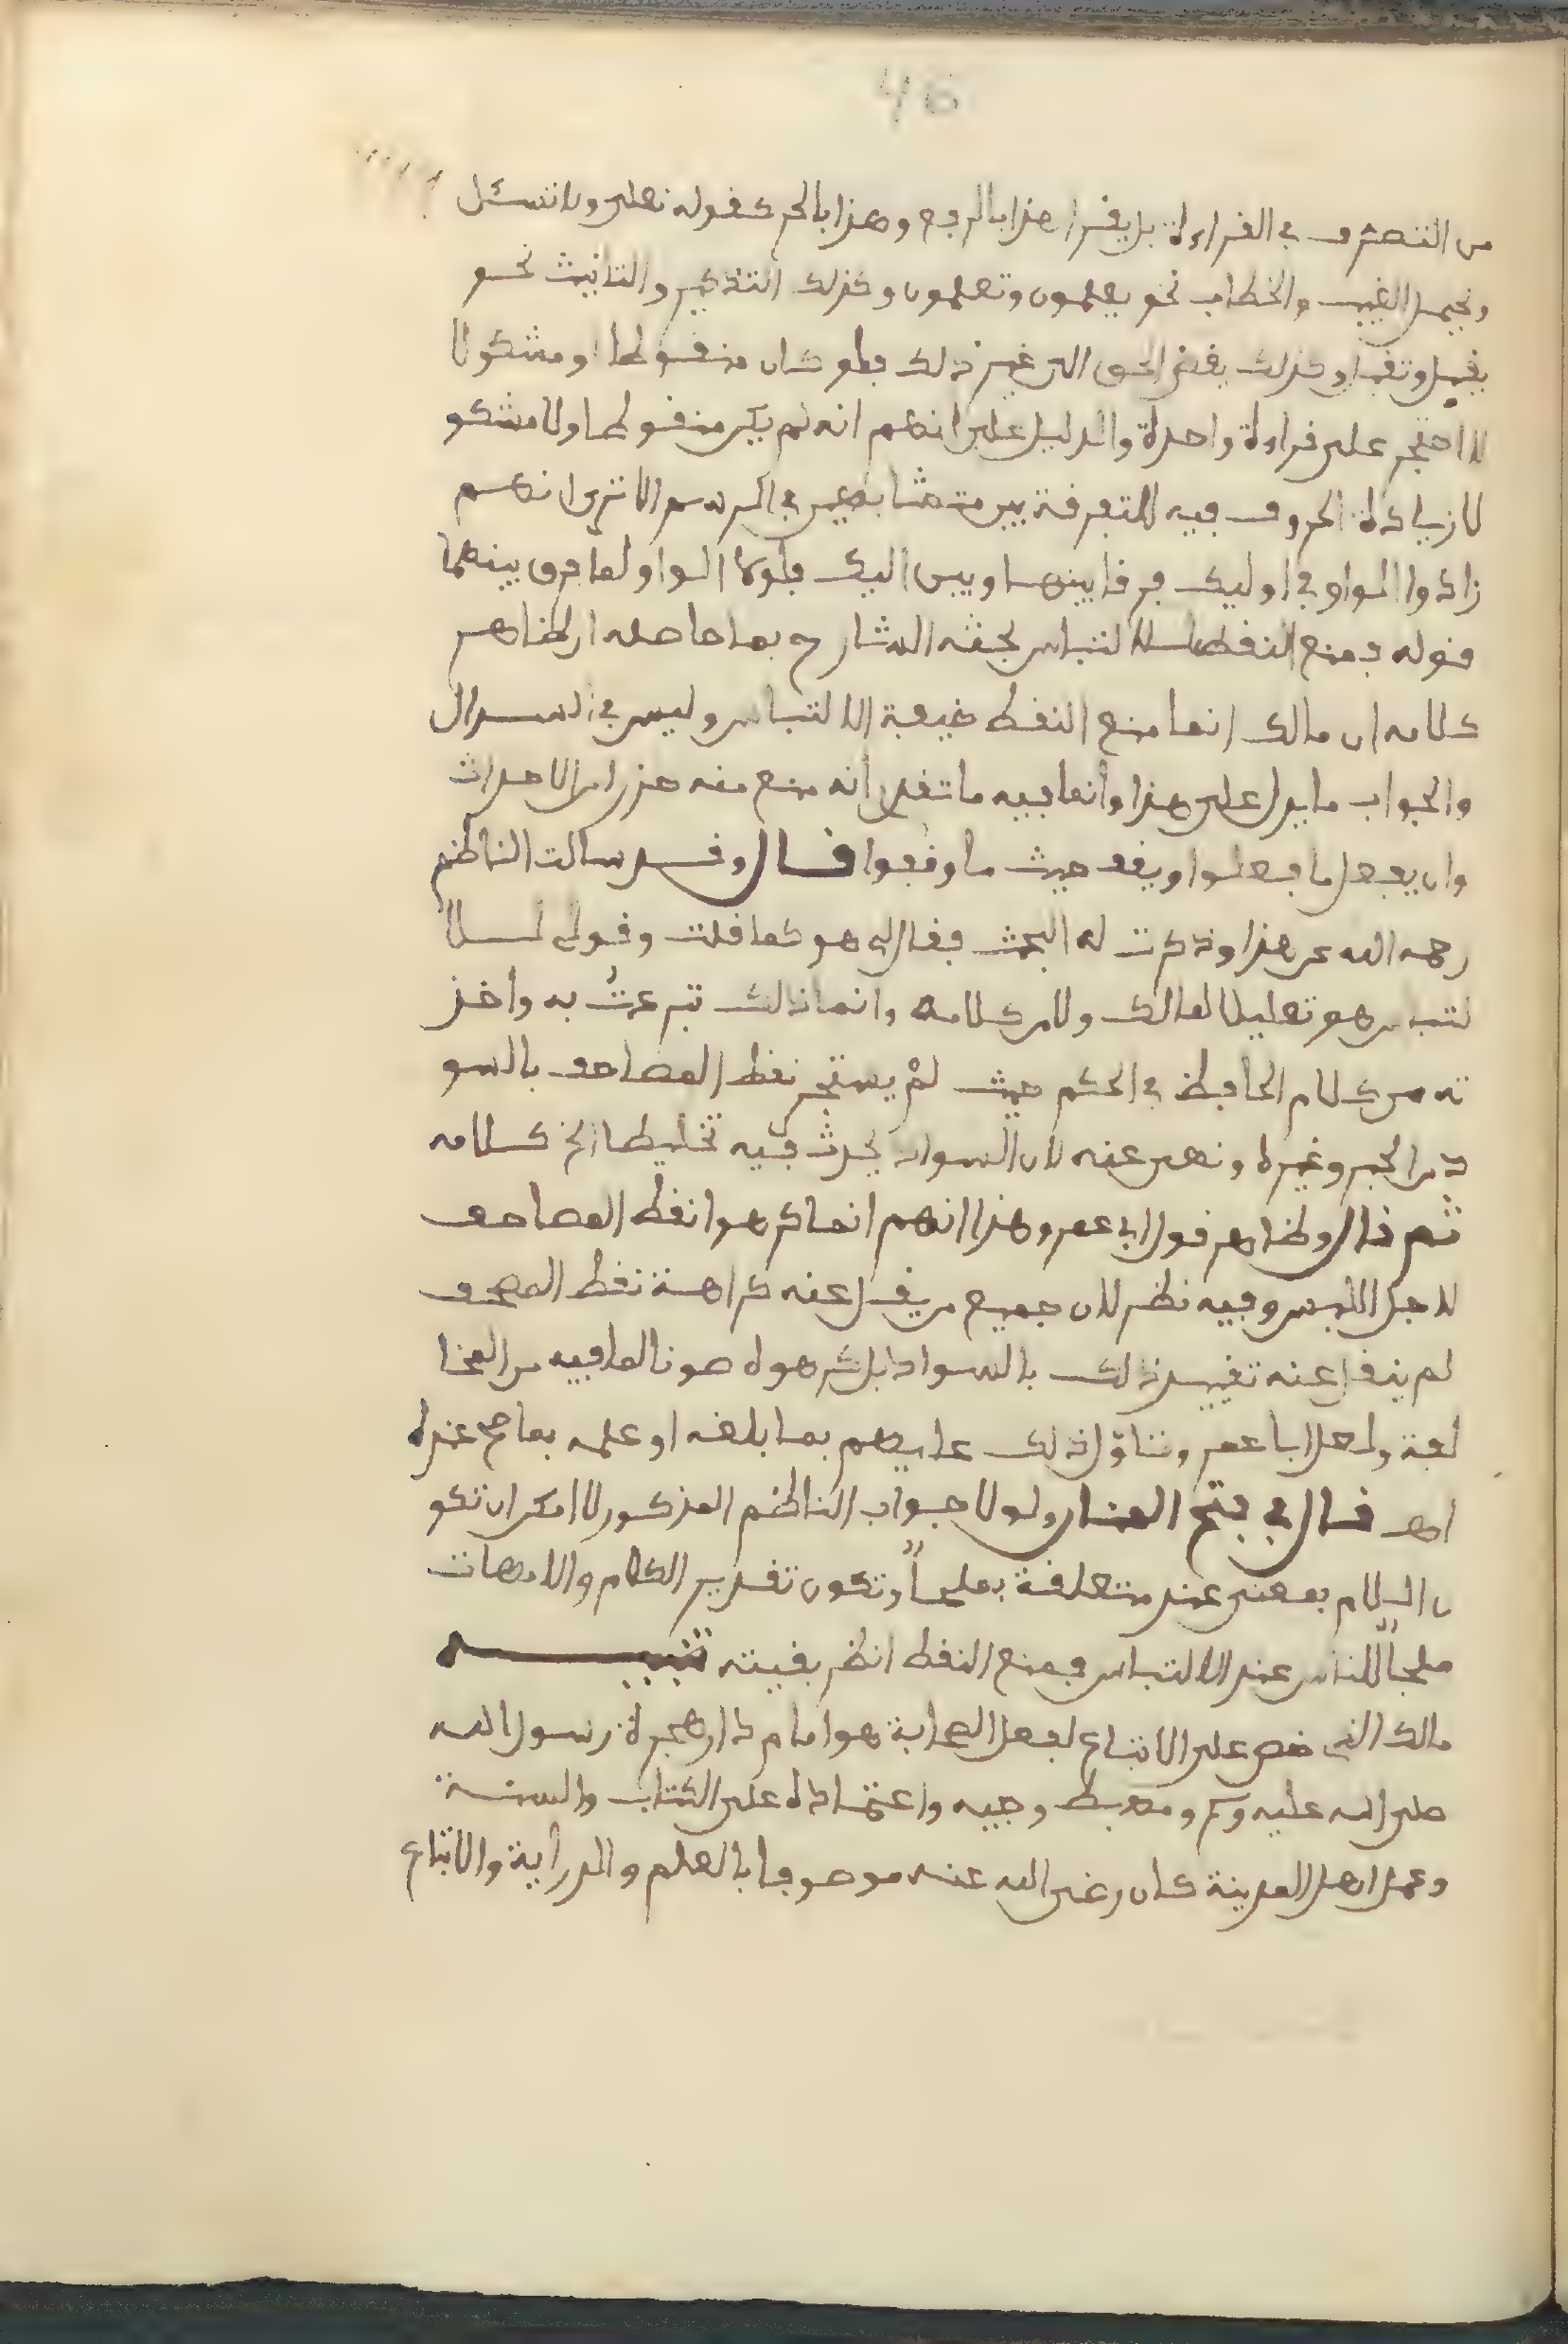 46
من التصرف في القراءة بل يقرا هذا بالرفع وهذا بالجزم كقوله تعلى ولا تسئل
ويحتمل الغيب والخطاب نحو يعلمون وتعلمون وكذلك التذكير والتانيث نحو
يقبل وتقبل وكذلك يقض الحق الى غير ذلك فلو كان منقوطا او مشكولا
لاحتجر على قراءة واحدة والدليل على انهم انه لم يكن منقوطا ولا مشكو
لا زيادة الحروف فيه للتفرقة بين متشابهين في الرسم الا ترى انهم
زادوا الواو في اوليك فرقا بينها وبين اليك فلولا الواو لما فرق بينهما
قوله فمنع النقط للالتباس بحثه الشارح بما حاصله ان ظاهر
كلامه ان مالك انما منع النقط خيفة الالتباس وليس في السوال
والجواب ما يدل على هذا وانما فيه ما تقدم أنه منع منه حذرا من الاحداث
وان يفعل ما فعلوا ويقف حيث ما وقفوا قال وقد سالت الناظم
رحمه الله عن هذا وذكرت له البحث فقال لي هو كما قلت وقولي للا
لتباس هو تعليلا لمالك ولا من كلامه وانما ذلك تبرعتُ به وأخذ
ته من كلام الحافظ في المحكم حيث لمْ يستجز نقط المصاحف بالسو
د من الحبر وغيره ونهى عنه لان السواد يحدث فيه تخليطا الخ كلامه
ثم قال وظاهر قول ابي عمرو هذا انهم انما كرهوا نقط المصاحف
لاجل اللبس وفيه نظر لان جميع من نقل عنه كراهة نقط المصحف
لم ينقل عنه تقييد ذلك بالسواد بل كرهوه صونا لما فيه من المخا
لفة ولعل ابا عمرو تناول ذلك عليهم بما بلغه او علمه بما صح عنده
اهـ قال في فتح المنان ولولا جواب الناظم المذكور لا امكن ان تكو
ن اللام بمعنى عند متعلقة بملجأً وتكون تقدير الكلام والامهات
ملجأً للناس عند الالتباس فمنع النقط انظر بقيته تنبيـــه
مالك الذي حض على الاتباع لفعل الصحابة هو امام دار هجرة رسول الله
صلى الله عليه وسلم ومهبط وحيه واعتماده على الكتاب والسنة
وعمل اهل المدينة كان رضي الله عنه موصوفا بالعلم والدرأية والاتباع